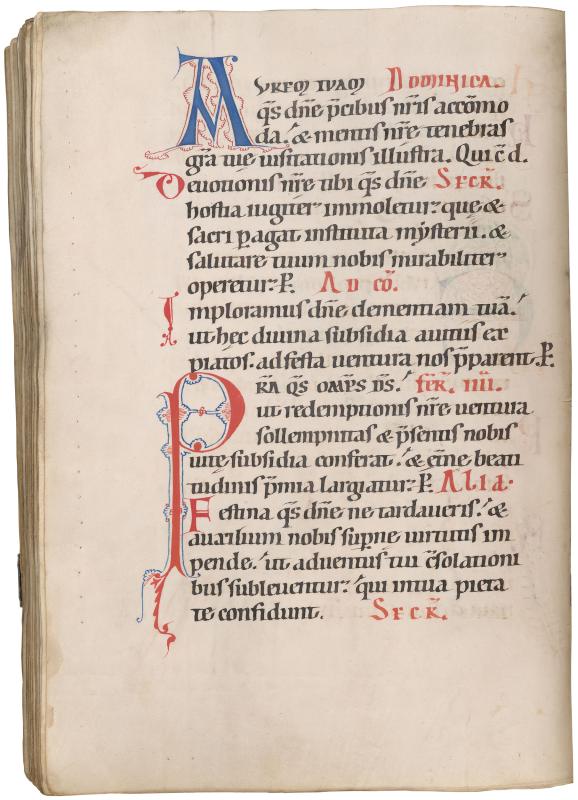 AUREM TUAM DOMINICA.
q̄s dn̄e p̄cibus nr̄is accōmo
da. & mentis nr̄e tenebras
grā tuę uisitationis illustra. Qui c̄ d.
Deuotionis nr̄e tibi q̄s dn̄e SECR̄.
hostia iugiter immoletur: que &
sacri ꝑagat instituta mẏsterii. &
salutare tuum nobis mirabiliter
operetur: P̄. AD CŌ.
Imploramus dn̄e clementiam tuā.
ut hęc diuina subsidia auitiis ex
piatos. ad festa uentura nos p̄parent. P̄.
PRĀ Q̄S OMP̄S D̄S. FER̄. IIII.
ut redemptionis nr̄e uentura
sollempnitas & p̄sentis nobis
uitę subsidia conferat. & et̄ne beati
tudinis p̄mia largiatur: P̄. ALIA.
Festina q̄s dn̄e ne tardaueris. &
auxilium nobis sup̄ne uirtutis im
pende. ut aduentus tui c̄solationi
bus subleuentur: qui in tua pieta
te confidunt. SECR̄.